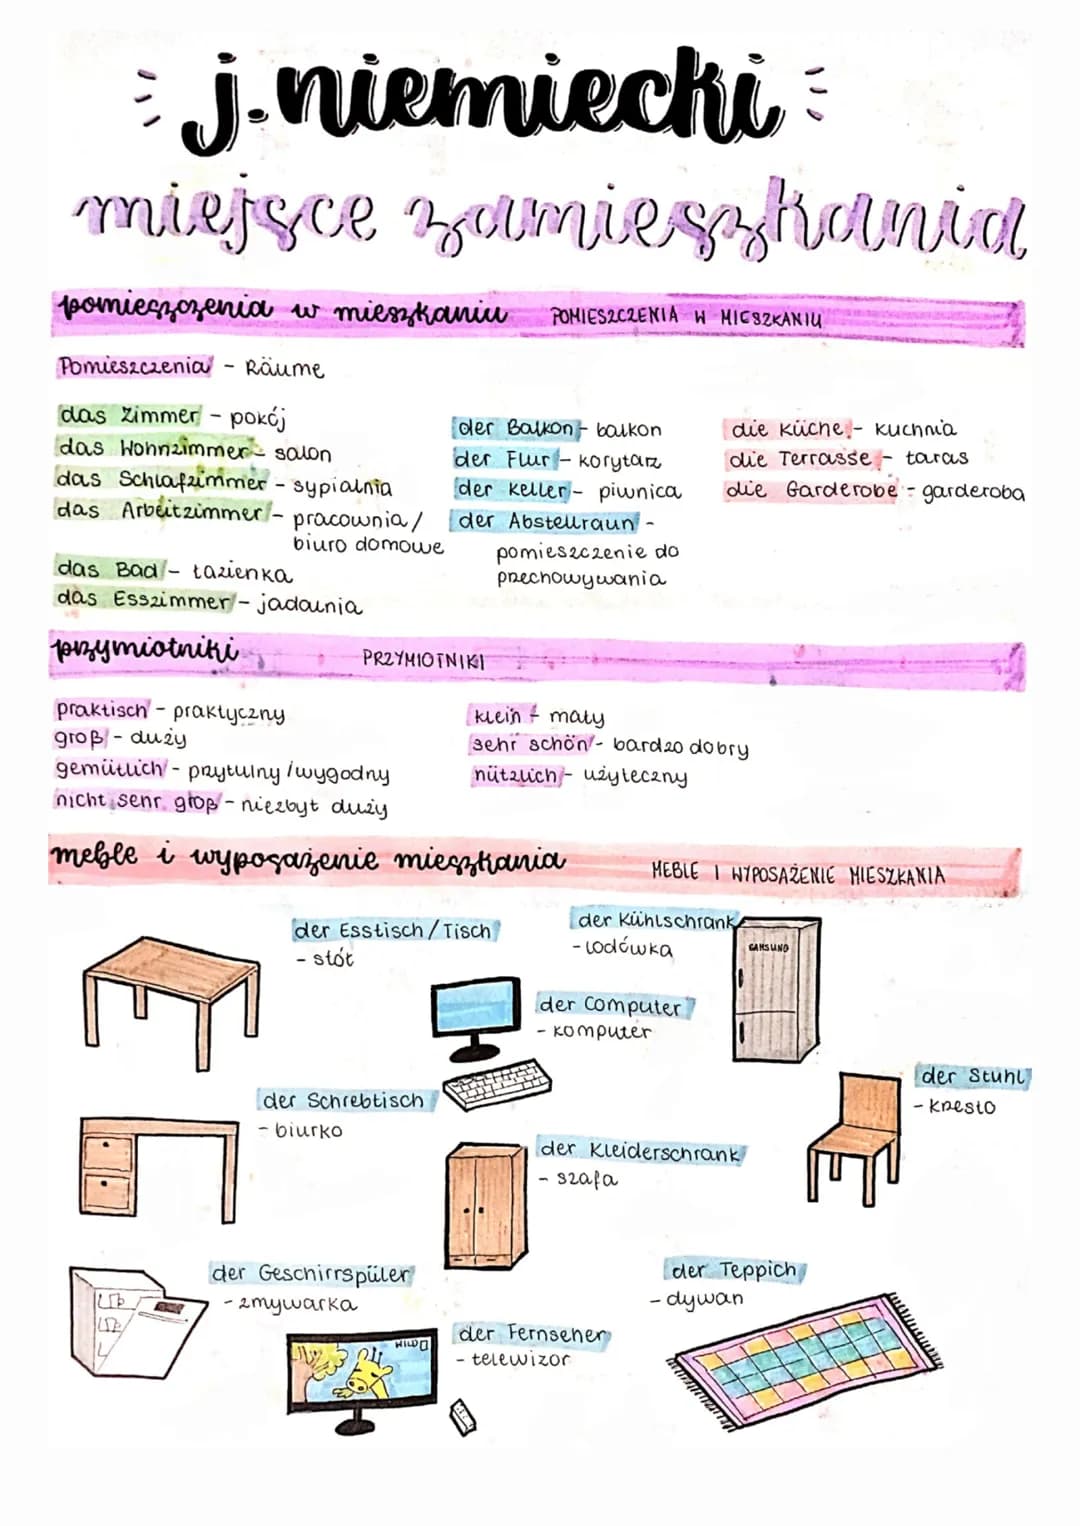 j. niemiecki
miejsce zamieszkania
pomieszczenia w mieszkaniu POMIESZCZENIA W MIESZKANIU
Pomieszczenia - Räume
das Zimmer - pokój
das Wohnzimmer - salon
das Schlafzimmer - sypialnia
das Arbeitzimmer - pracownia/
biuro domowe
das Bad - łazienka
das Esszimmer - jadalnia
der Balkon - balkon
der Flur - korytarz
der Keller - piwnica
der Abstellraun -
pomieszczenie do
przechowywania
die Küche - kuchnia
die Terrasse - taras
die Garderobe - garderoba
przymiotniki PRZYMIOTNIKI
praktisch - praktyczny
groß - duży
gemütlich - przytulny/wygodny
nicht sehr groß - niezbyt duży
klein - mały
sehr schön - bardzo dobry
nützlich - użyteczny
meble i wyposażenie mieszkania MEBLE I WYPOSAŻENIE MIESZKANIA
der Esstisch/Tisch
- stół
der Kühlschrank
- lodówka
SAMSUNG
der Computer
- komputer
der Stuhl
- krzesło
der Schrebtisch
- biurko
der Kleiderschrank
- szafa
der Geschirrspüler
- zmywarka
der Teppich
- dywan
der Fernseher
- telewizor
WILD